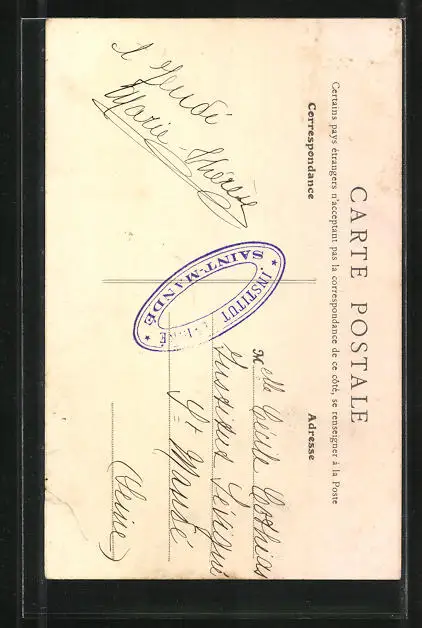 CARTE POSTALE
Certains pays étrangers n'acceptent pas la correspondance de ce côté, se renseigner à la Poste
Correspondance
Adresse
à Jeudi
Marie-Thérèse
INSTITUT
SAINT-MANDÉ
Melle Cécile
Institut Sévigné
St Mandé
(Seine)